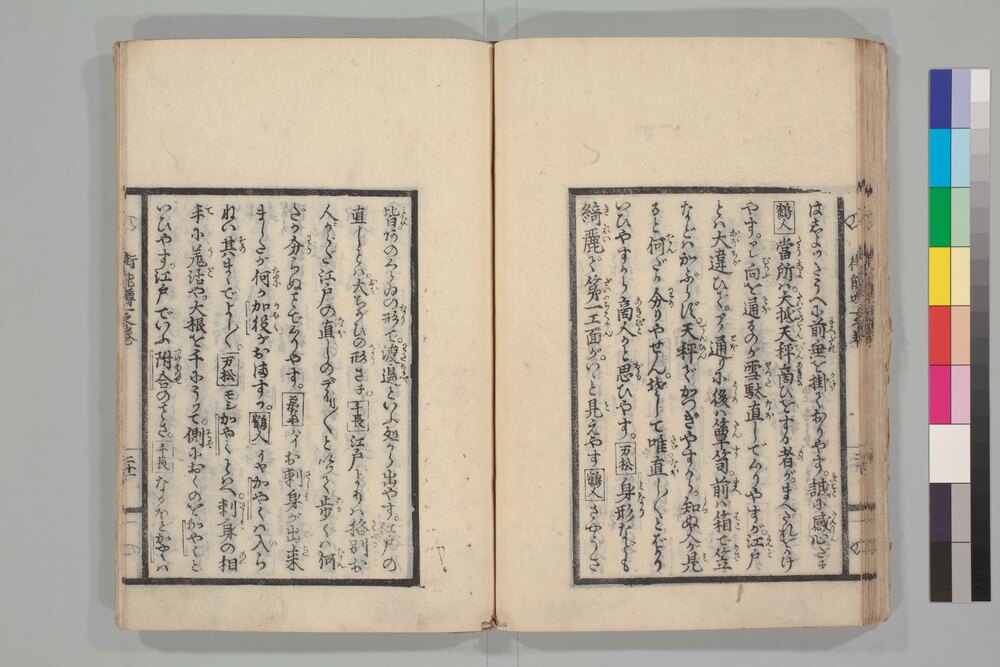 はしよりさうへ出前垂を掛ておりやす。誠に感心だ子
鶴人 當所ハ大抵天秤商ひをする者がまへだれをかけ
やす。アレ向を通るのが雪駄直しでムりやすが江戸
とハ大違ひ。アノ通りに後ハ箪笥前ハ箱で笠
などハかぶらず。天秤でかつぎやすから。知ぬ人が見
ると何だか分りやせん。そして唯直し〳〵とばかり
いひやすから商人かと思ひやす。万松 身形なども
綺麗で第一工面が。いゝと見えやす 鶴人 さやうさ
皆 のくらゐの形で。渡邉といふ処から出やす。江戸の
直しとハ大ちがひの形さ子 千長 江戸よりハ格別お
人がらだ江戸の直しのデイ〳〵といつて歩くハ何
だか分らぬ でムりやす。 ハイお刺身が出来
ましたが何ぞ加役がお する。鶴人 イヤかやくハ入ら
ねい其まゝでよし〳〵 万松 モシかやくとハ刺身の相
手に 活や。大根を千にうつて。側におくのをかやくと
いひやす。江戸でいふ附合のことさ。千長 なるほどかやくハ